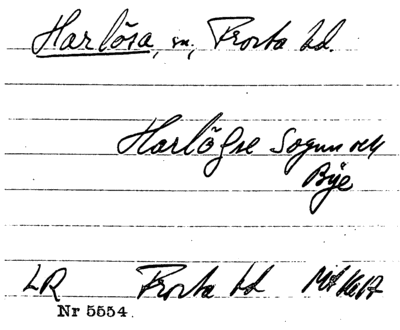 Harlösa, sn, Frosta hd.
Harlögse Sognn och
Bÿe
LR Frosta hd
Nr 5554.